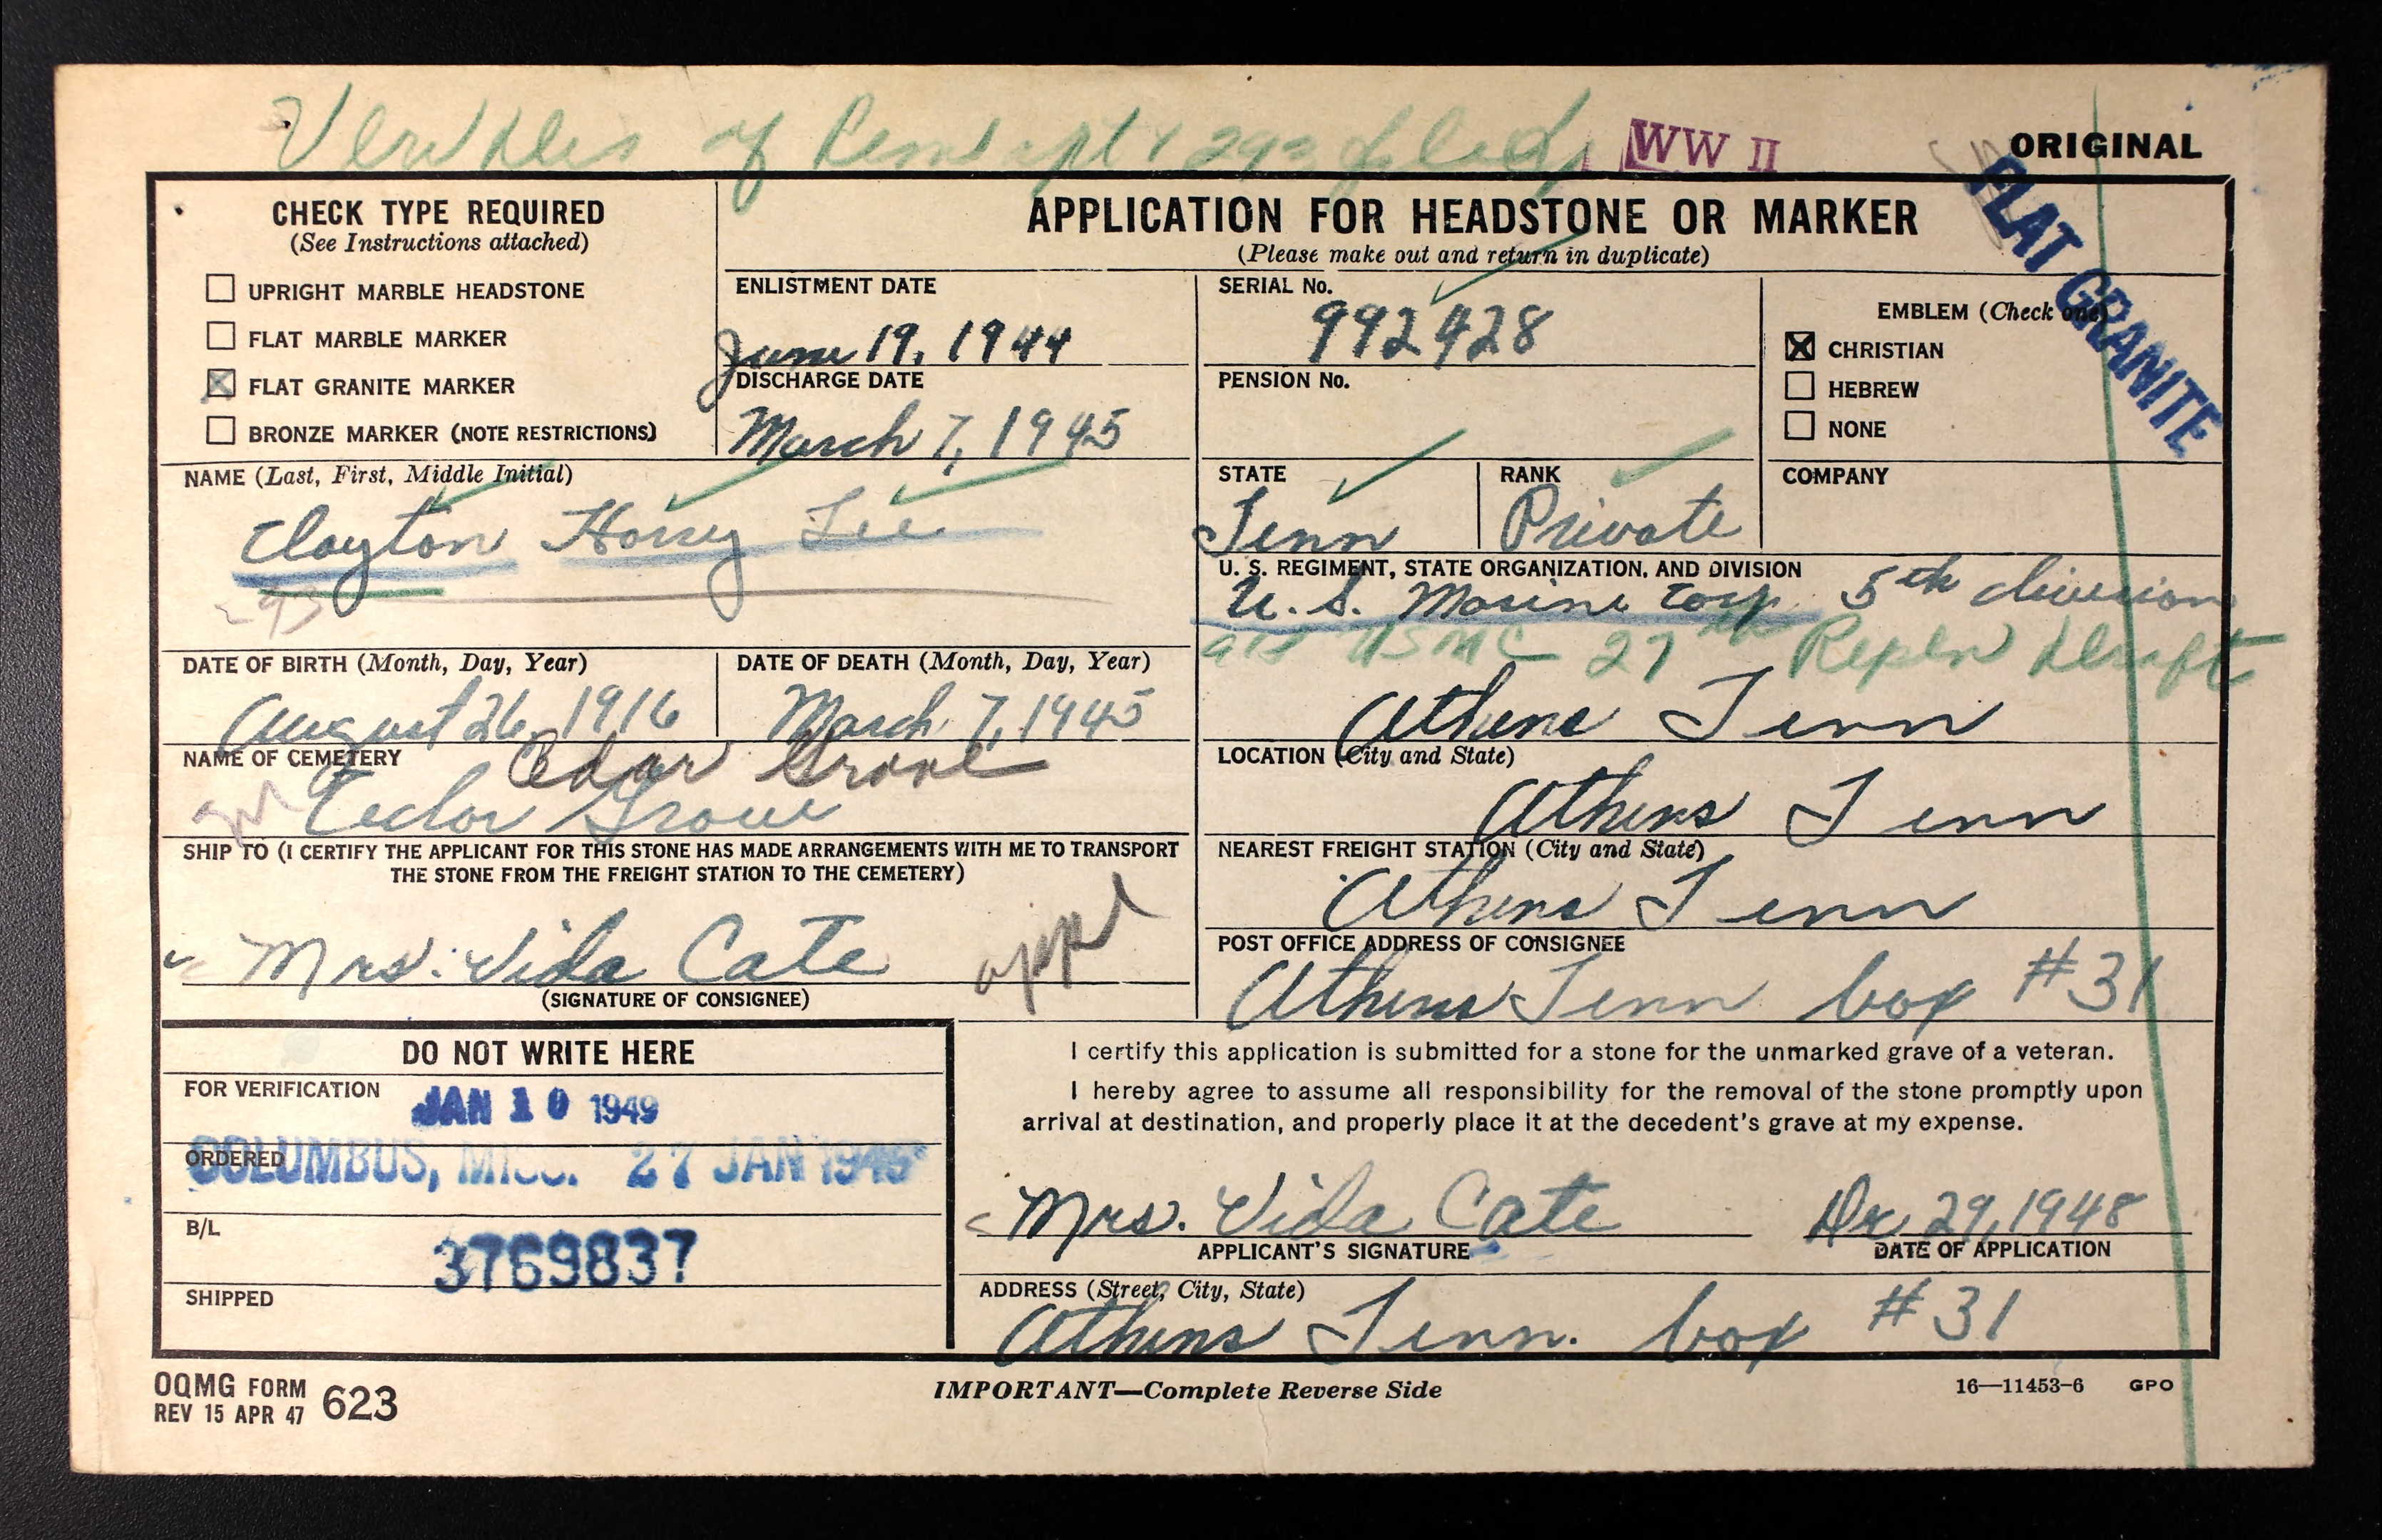 of Remains 293 filed
WW II
ORIGINAL
FLAT GRANITE
CHECK TYPE REQUIRED
(See Instructions attached)
☐ UPRIGHT MARBLE HEADSTONE
☐ FLAT MARBLE MARKER
☒ FLAT GRANITE MARKER
☐ BRONZE MARKER (NOTE RESTRICTIONS)
APPLICATION FOR HEADSTONE OR MARKER
(Please make out and return in duplicate)
ENLISTMENT DATE
June 19, 1944
DISCHARGE DATE
March 7, 1945
SERIAL No.
992428
PENSION No.
EMBLEM (Check one)
☒ CHRISTIAN
☐ HEBREW
☐ NONE
NAME (Last, First, Middle Initial)
Clayton Harry Lee
293
STATE
Tenn
RANK
Private
COMPANY
U. S. REGIMENT, STATE ORGANIZATION, AND DIVISION
U. S. Marine Corp. 5th division
USMC 27th Repln Draft
Athens Tenn
DATE OF BIRTH (Month, Day, Year)
August 26, 1916
DATE OF DEATH (Month, Day, Year)
March 7, 1945
NAME OF CEMETERY
Cedar Grove
Cedar Grove
LOCATION (City and State)
Athens Tenn
SHIP TO (I CERTIFY THE APPLICANT FOR THIS STONE HAS MADE ARRANGEMENTS WITH ME TO TRANSPORT
THE STONE FROM THE FREIGHT STATION TO THE CEMETERY)
Mrs. Vida Cate appl
(SIGNATURE OF CONSIGNEE)
NEAREST FREIGHT STATION (City and State)
Athens Tenn
POST OFFICE ADDRESS OF CONSIGNEE
Athens Tenn box #31
DO NOT WRITE HERE
FOR VERIFICATION
JAN 10 1949
ORDERED
COLUMBUS, MISS. 27 JAN 1949
B/L
3769837
SHIPPED
I certify this application is submitted for a stone for the unmarked grave of a veteran.
I hereby agree to assume all responsibility for the removal of the stone promptly upon
arrival at destination, and properly place it at the decedent's grave at my expense.
Mrs. Vida Cate
APPLICANT'S SIGNATURE
Dec 29, 1948
DATE OF APPLICATION
ADDRESS (Street, City, State)
Athens Tenn. box #31
OQMG FORM
REV 15 APR 47 623
IMPORTANT—Complete Reverse Side
16—11453-6 GPO